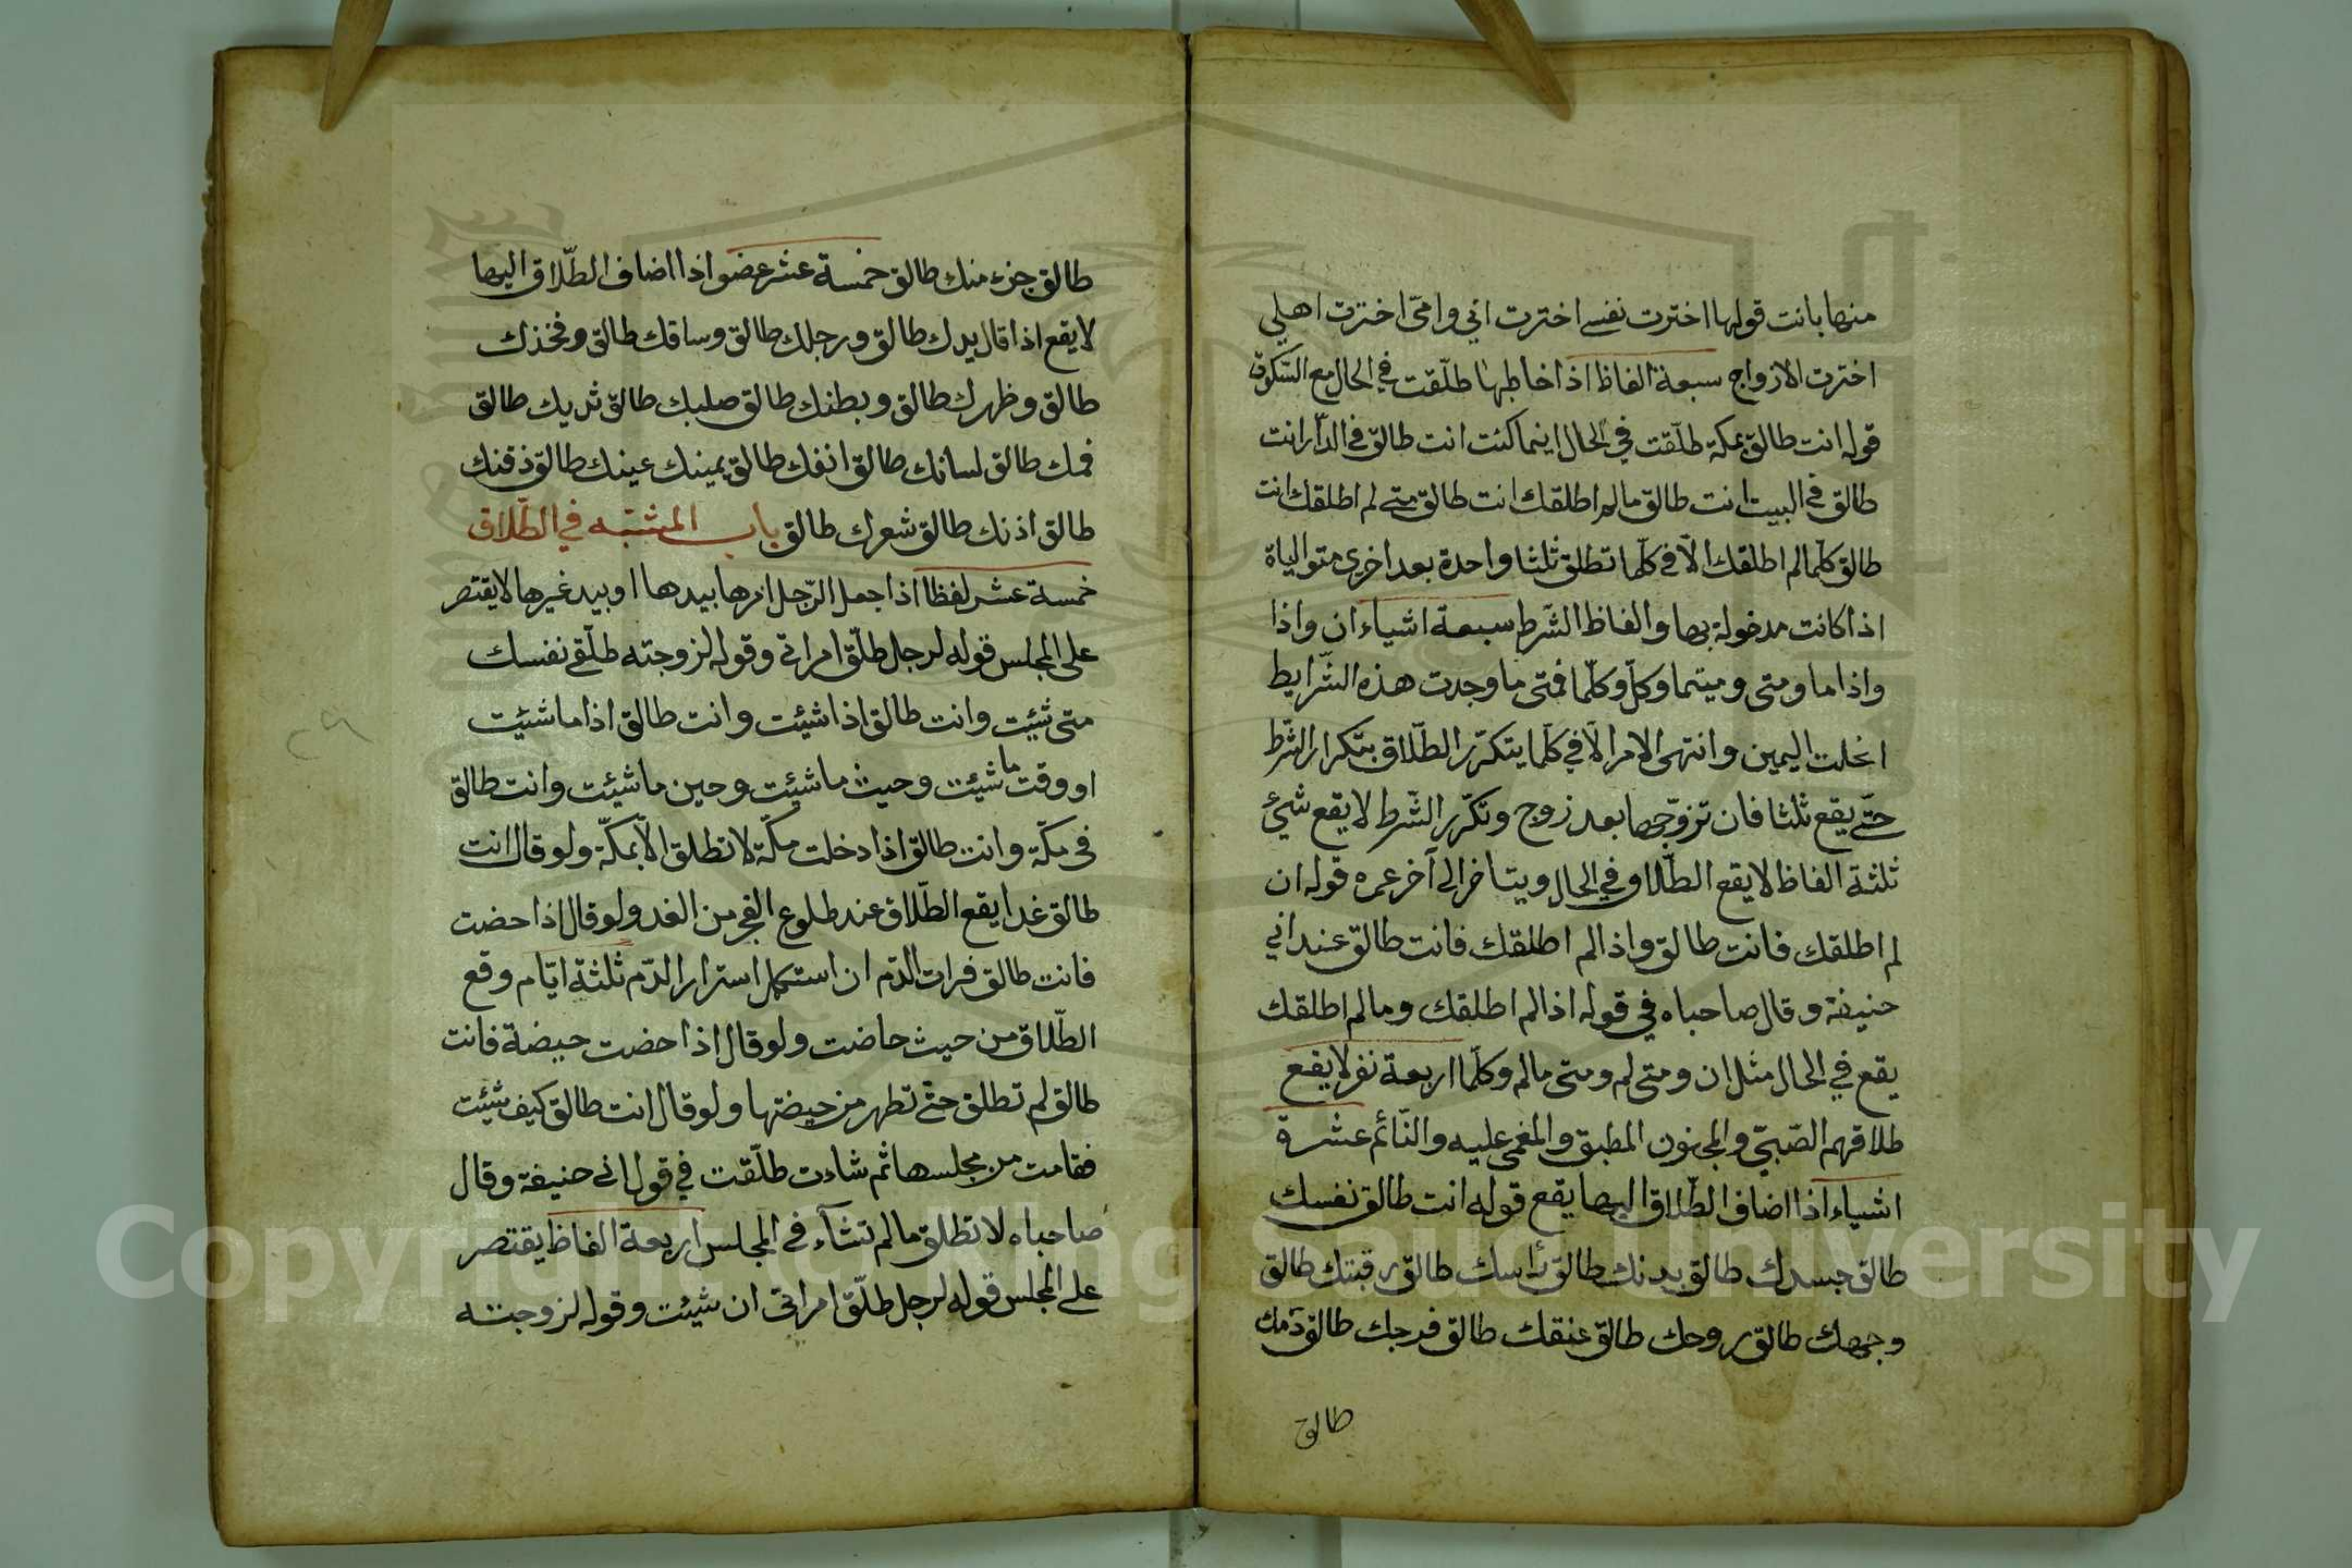 منها بانت قولها اخترت نفسے اخترت ابي وامّي اخترت اهلي
اخترت الازواج سبعة الفاظ اذا خاطبها طلّقت في الحال مع السّكوت
قوله انت طالق بمكة طلّقت في الحال اينما كنت انت طالق في الدّار انت
طالق في البيت انت طالق مالم اطلقك انت طالق متى لم اطلقك انت
طالق كلّما لم اطلقك الّا في كلّها تطلق ثلثا واحدة بعد اخرى متوالياة
اذا كانت مدخولة بها والفاظ الشّرط سبعة اشياء ان واذا
واذا ما ومتى وميتما وكلّ وكلّما فمتى ما وجدت هذه الشّرايط
انحلت اليمين وانتهى الامر الّا في كلّما يتكرّر الطّلاق بتكرار الشّرط
حتّى يقع ثلثا فان تزوّجها بعد زوج وتكرّر الشّرط لا يقع شيئ
ثلثة الفاظ لا يقع الطّلاق في الحال ويتاخر الى آخر عمره قوله ان
لم اطلقك فانت طالق واذا لم اطلقك فانت طالق عند ابي
حنيفة وقال صاحباه في قوله اذا لم اطلقك ومالم اطلقك
يقع في الحال مثل ان ومتى لم ومتى مالم وكلّما اربعة نفر لا يقع
طلاقهم الصّبيّ والمجنون المطبق والمغمى عليه والنّائم عشرة
اشياء اذا اضاف الطّلاق اليها يقع قوله انت طالق نفسك
طالق جسدك طالق بدنك طالق رأسك طالق رقبتك طالق
وجهك طالق روحك طالق عنقك طالق فرجك طالق دمك
طالق
طالق جزء منك طالق خمسة عشر عضوا اذا اضاف الطّلاق اليها
لا يقع اذا قال يدك طالق ورجلك طالق وساقك طالق وفخذك
طالق وظهرك طالق وبطنك طالق صلبك طالق ثديك طالق
فمك طالق لسانك طالق انفك طالق يمينك عينك طالق ذقنك
طالق اذنك طالق شعرك طالق باب المشتبه في الطّلاق
خمسة عشر لفظا اذا جعل الرّجل امرها بيدها او بيد غيرها لا يقتصر
على المجلس قوله لرجل طلّق امراتي وقوله لزوجته طلّقي نفسك
متى شيئت وانت طالق اذا شيئت وانت طالق اذا ما شيئت
او وقت ما شيئت وحيث ما شيئت وحين ما شيئت وانت طالق
في مكّة وانت طالق اذا دخلت مكّة لا تطلق الّا بمكّة ولو قال انت
طالق غدا يقع الطّلاق عند طلوع الفجر من الغد ولو قال اذا حضت
فانت طالق فرات الدّم ان استكمل استرار الدّم ثلثة ايّام وقع
الطّلاق من حيث حاضت ولو قال اذا حضت حيضة فانت
طالق لم تطلق حتّى تطهر من حيضتها ولو قال انت طالق كيف شيئت
فقامت من مجلسها ثم شاءت طلّقت في قول ابي حنيفة وقال
صاحباه لا تطلق مالم تشآء في المجلس اربعة الفاظ يقتصر
على المجلس قوله لرجل طلّق امراتي ان شيئت وقوله لزوجته
Copyright © King Saud University